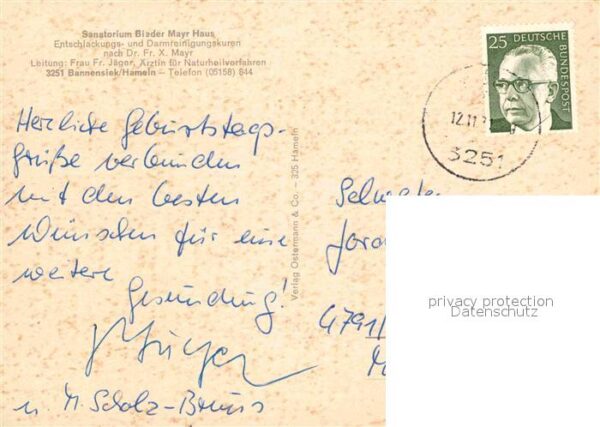 Sanatorium Blader Mayr Haus
Entschlackungs- und Darmreinigungskuren
nach Dr. Fr. X. Mayr
Leitung: Frau Fr. Jäger, Ärztin für Naturheilverfahren
3251 Bannensiek/Hameln – Telefon (05158) 844
Herzliche Geburtstags-
grüße verbunden
mit den besten
Wünschen für eine
weitere
Gesundung!
u. M. Scholz-Bruns
Verlag Ostermann & Co. – 325 Hameln
25 DEUTSCHE
BUNDESPOST
12.11.7
3251
Schwester
4791/
privacy protection
Datenschutz